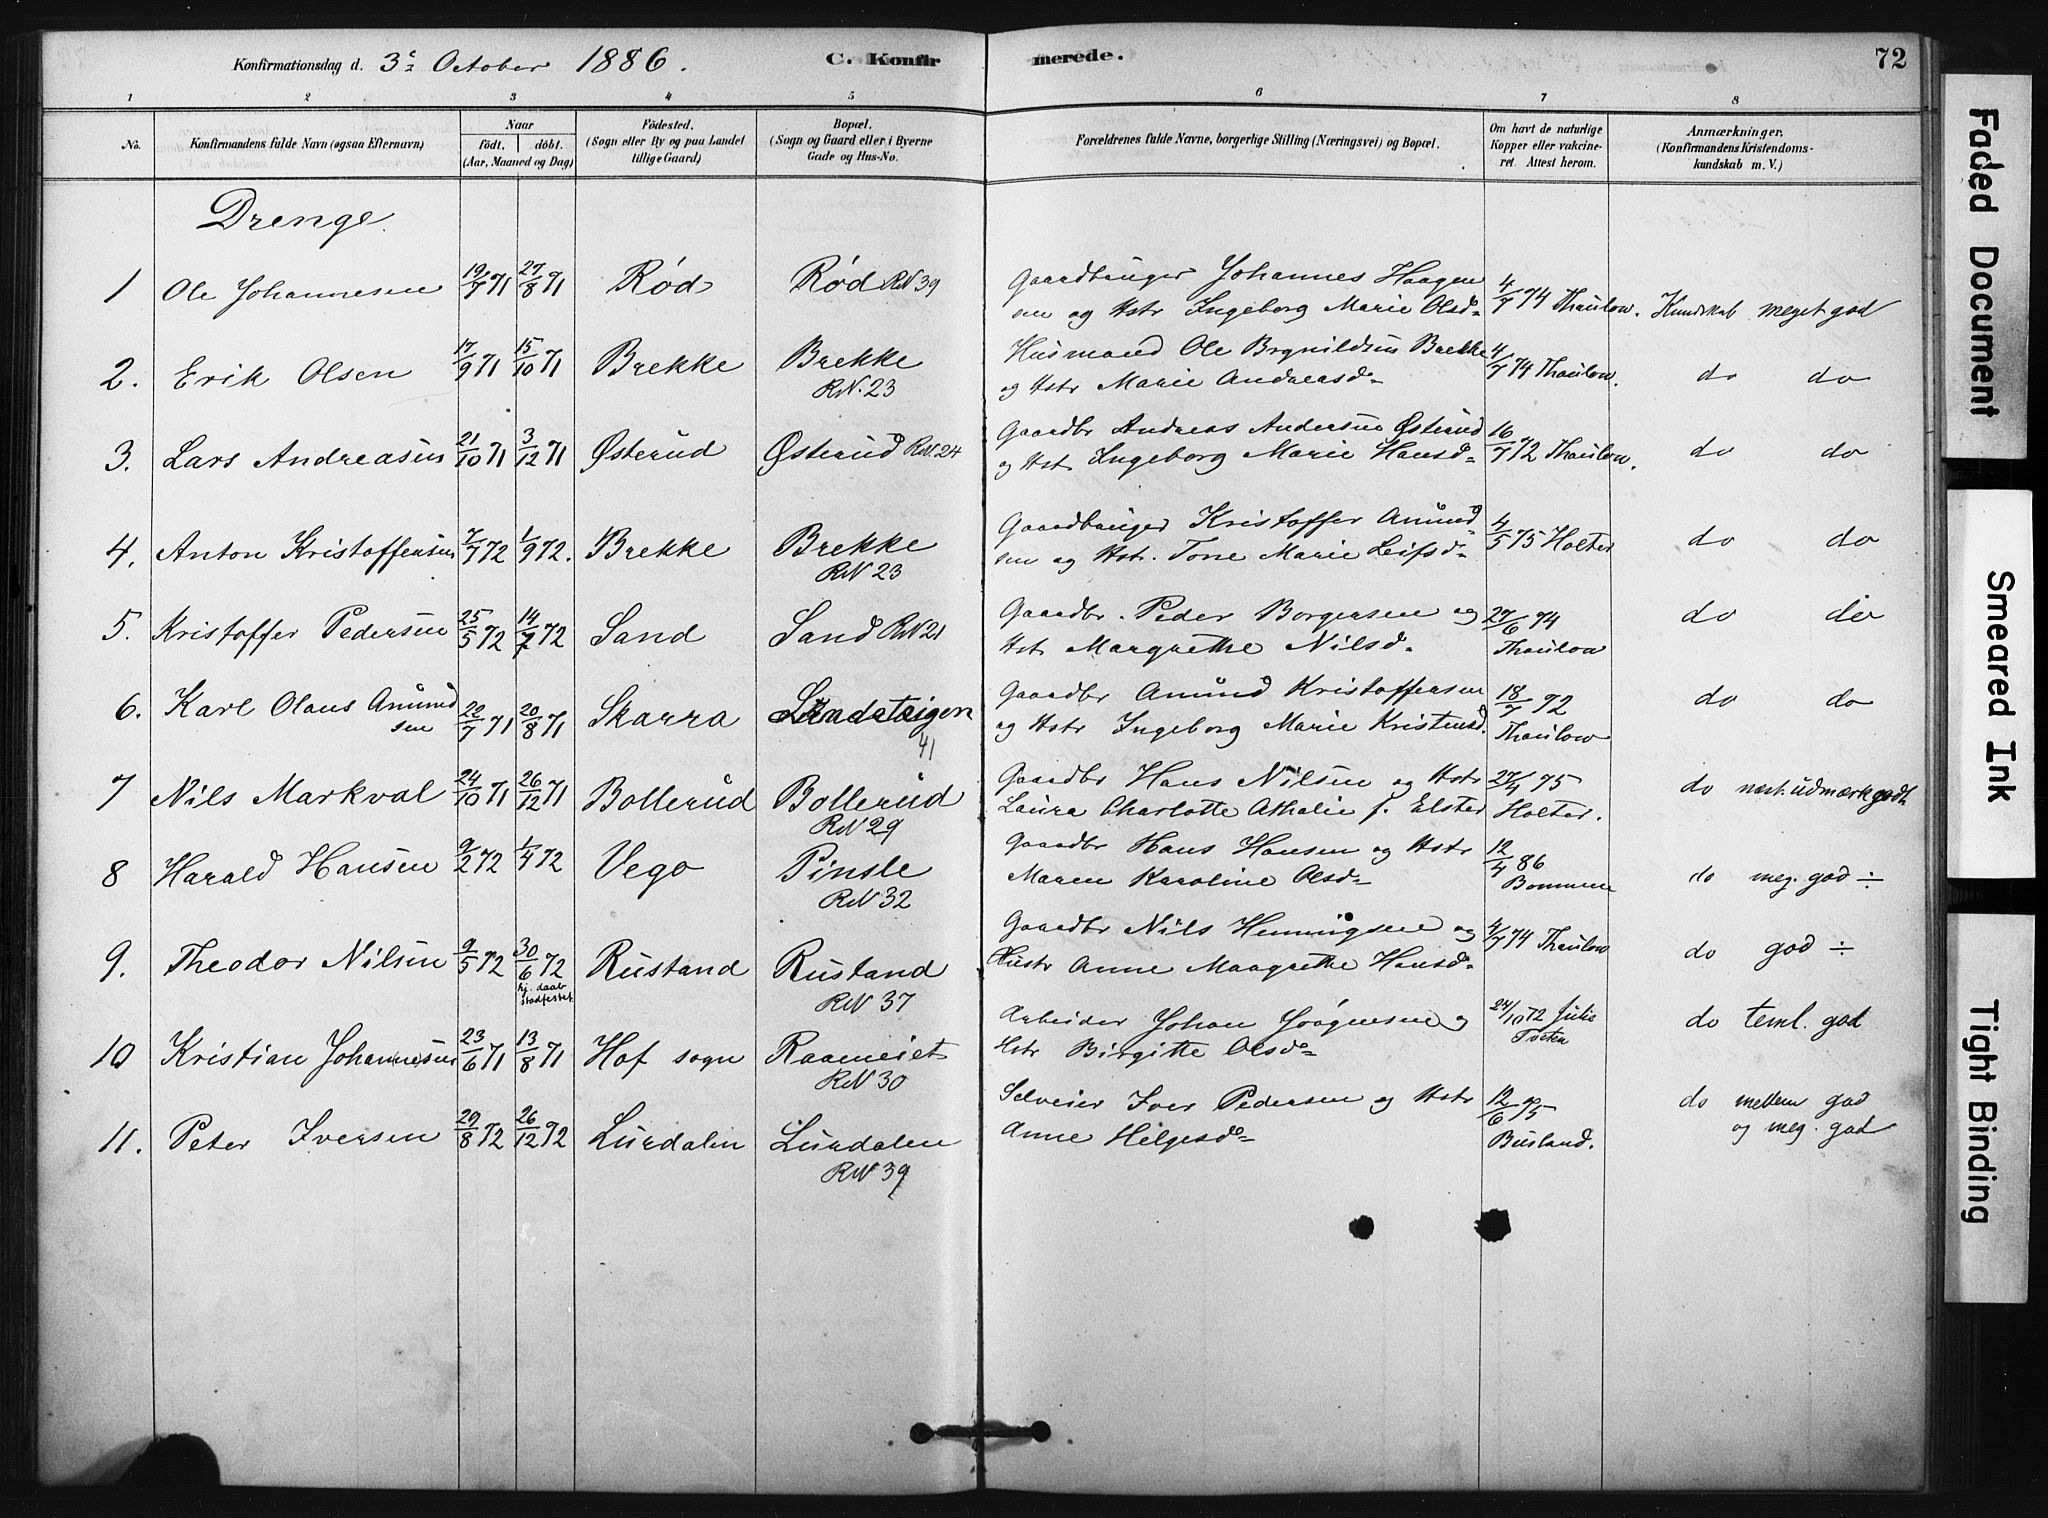 Konfirmationsdag d. 3die October 1886. C. Konfirmerede. 72
1 2 3 4 5 6 7 8
No. Konfirmandens fulde Navn (ogsaa Efternavn) Naar Födt. döbt. (Aar, Maaned og Dag) Födested. (Sogn eller By og paa Landet tillige Gaard) Bopæl. (Sogn og Gaard eller i Byerne Gade og Hus-No. Forældrenes fulde Navne, borgerlige Stilling (Næringsvei) og Bopæl. Om havt de naturlige Kopper eller vakcineret. Attest herom. Anmærkninger, (Konfirmandens Kristendomskundskab m. V.)
Drenge.
1 Ole Johannesen 19/7 71 27/8 71 Rød Rød RN 39 Gaardbruger Johannes Haagensen og Hstr Ingeborg Marie Olsd. 4/7 74 Thaulow. Kundskab meget god
2. Erik Olsen 17/9 71 15/10 71 Brekke Brekke RN. 23 Husmand Ole Brynildsen Brekke og Hstr Marie Andreasd. 4/7 74 Thaulow. do do
3. Lars Andreasen 21/10 71 3/12 71 Østerud Østerud RN. 24 Gaardbr Andreas Andersen Østerud og Hst. Ingeborg Marie Hansd. 16/7 72 Thaulow. do do
4. Anton Kristoffersen 7/7 72 1/9 72. Brekke Brekke RN 23 Gaardbruger Kristoffer Amundsen og Hstr. Tone Marie Leifsd. 4/5 75 Holter do do
5. Kristoffer Pedersen 25/5 72 14/7 72 Sand Sand RN 21 Gaardbr. Peder Borgersen og Hstr Margrethe Nilsd. 27/6 74 Thaulow do do
6. Karl Olaus Amundsen 22/7 71 20/8 71 Skarra Sandsteigen 41 Gaardbr Amund Kristoffersen og Hstr Ingeborg Marie Kristensd. 18/7 72 Thaulow do do
7 Nils Markval 24/10 71 26/12 71 Bollerud Bollerud RN 29 Gaardbr Hans Nilsen og Hstr Laura Charlotte Athalie f. Elster 27/4 75 Holter. do næst. udmærk godt
8 Harald Hansen 9/2 72 1/4 72 Vego Pinsle RN 32 Gaardbr Hans Hansen og Hstr Maren Karoline Olsd. 12/4 86 Bommen do meg. god ÷
9. Theodor Nilsen 9/5 72 30/6 72 hj. daab stadfestet Rustand Rustand RN 37 Gaardbr Nils Henningsen og Hustr Anne Maagrethe Hansd. 4/7 74 Thaulow do god ÷
10 Kristian Johannesen 23/6 71 13/8 71 Hof sogn Raameiet RN 30 Arbeider Johan Jörgensen og Hstr Birgitte Olsd. 24/10 72 Julie Tveten do teml. god
11. Peter Iversen 29/8 72 26/12 72 Lurdalen Lurdalen RN 39 Selveier Iver Pedersen og Hstr Anne Helgesd. 12/6 75 Busland. do mellem god og meg. god
Faded Document
Smeared Ink
Tight Binding